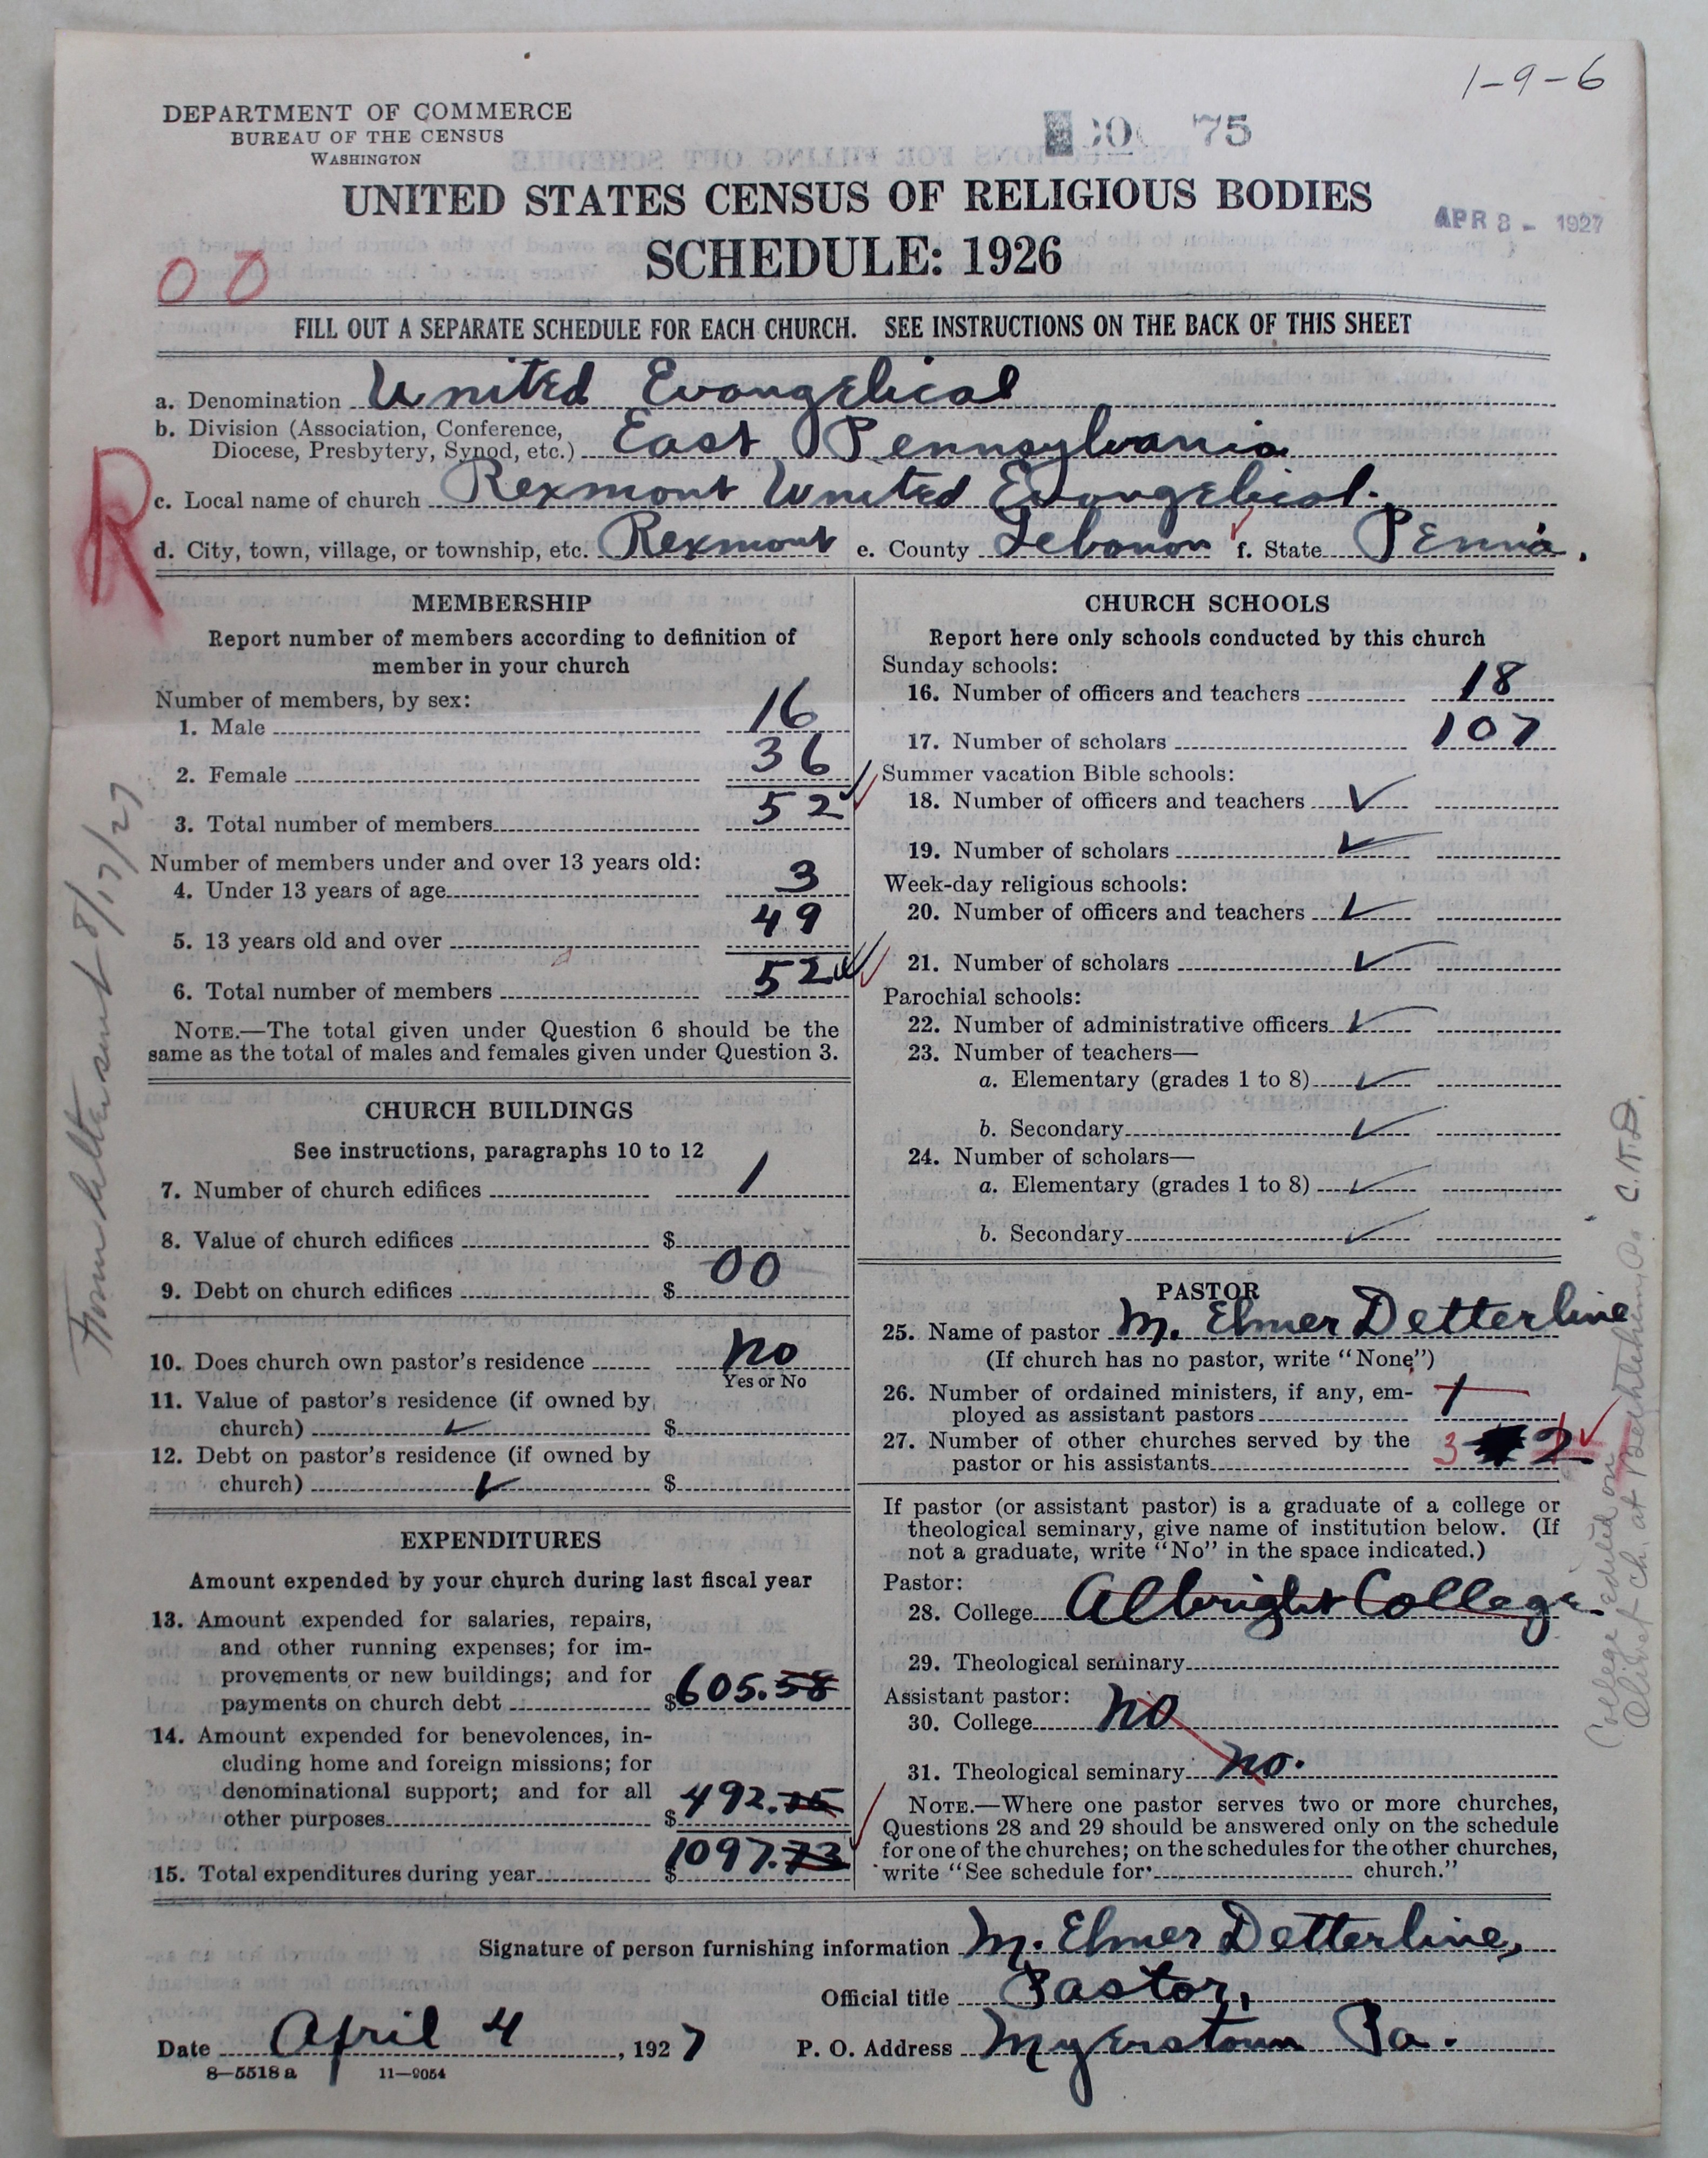 1-9-6
DEPARTMENT OF COMMERCE
BUREAU OF THE CENSUS
WASHINGTON
75
UNITED STATES CENSUS OF RELIGIOUS BODIES
APR 8 - 1927
SCHEDULE: 1926
00
FILL OUT A SEPARATE SCHEDULE FOR EACH CHURCH. SEE INSTRUCTIONS ON THE BACK OF THIS SHEET
a. Denomination United Evangelical
b. Division (Association, Conference,
Diocese, Presbytery, Synod, etc.) East Pennsylvania
R
c. Local name of church Rexmont United Evangelical.
d. City, town, village, or township, etc. Rexmont e. County Lebanon f. State Penna.
MEMBERSHIP
Report number of members according to definition of
member in your church
Number of members, by sex:
1. Male 16
2. Female 36
3. Total number of members 52
Number of members under and over 13 years old:
4. Under 13 years of age 3
5. 13 years old and over 49
6. Total number of members 52
NOTE.—The total given under Question 6 should be the
same as the total of males and females given under Question 3.
CHURCH BUILDINGS
See instructions, paragraphs 10 to 12
7. Number of church edifices 1
8. Value of church edifices $
9. Debt on church edifices $ 00
10. Does church own pastor's residence no
Yes or No
11. Value of pastor's residence (if owned by
church) ✓ $
12. Debt on pastor's residence (if owned by
church) ✓ $
EXPENDITURES
Amount expended by your church during last fiscal year
13. Amount expended for salaries, repairs,
and other running expenses; for im-
provements or new buildings; and for
payments on church debt $605.58
14. Amount expended for benevolences, in-
cluding home and foreign missions; for
denominational support; and for all
other purposes $492.15
15. Total expenditures during year $1097.73
CHURCH SCHOOLS
Report here only schools conducted by this church
Sunday schools:
16. Number of officers and teachers 18
17. Number of scholars 107
Summer vacation Bible schools:
18. Number of officers and teachers ✓
19. Number of scholars ✓
Week-day religious schools:
20. Number of officers and teachers ✓
21. Number of scholars ✓
Parochial schools:
22. Number of administrative officers ✓
23. Number of teachers—
a. Elementary (grades 1 to 8) ✓
b. Secondary ✓
24. Number of scholars—
a. Elementary (grades 1 to 8) ✓
b. Secondary ✓
PASTOR
25. Name of pastor M. Elmer Detterline
(If church has no pastor, write "None")
26. Number of ordained ministers, if any, em-
ployed as assistant pastors 1
27. Number of other churches served by the
pastor or his assistants 3 2
If pastor (or assistant pastor) is a graduate of a college or
theological seminary, give name of institution below. (If
not a graduate, write "No" in the space indicated.)
Pastor:
28. College Albright College.
29. Theological seminary
Assistant pastor:
30. College no
31. Theological seminary no.
NOTE.—Where one pastor serves two or more churches,
Questions 28 and 29 should be answered only on the schedule
for one of the churches; on the schedules for the other churches,
write "See schedule for church."
Signature of person furnishing information M. Elmer Detterline,
Official title Pastor,
Date April 4, 1927 P. O. Address Myerstown Pa.
8—5518 a 11—9054
From letter sent 8/17/27
College edited on
Olivet ch. at Bethlehem Pa. C.H.D.